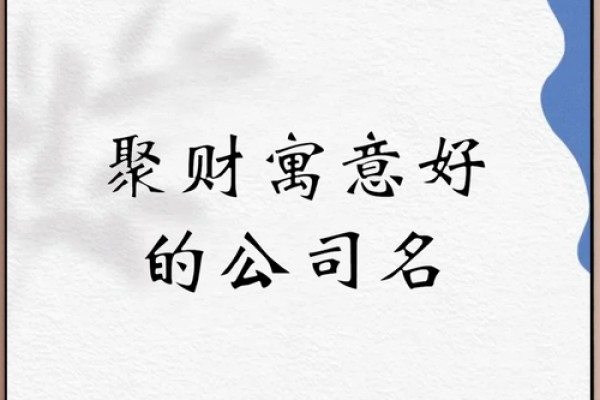 聚财寓意好
的公司名